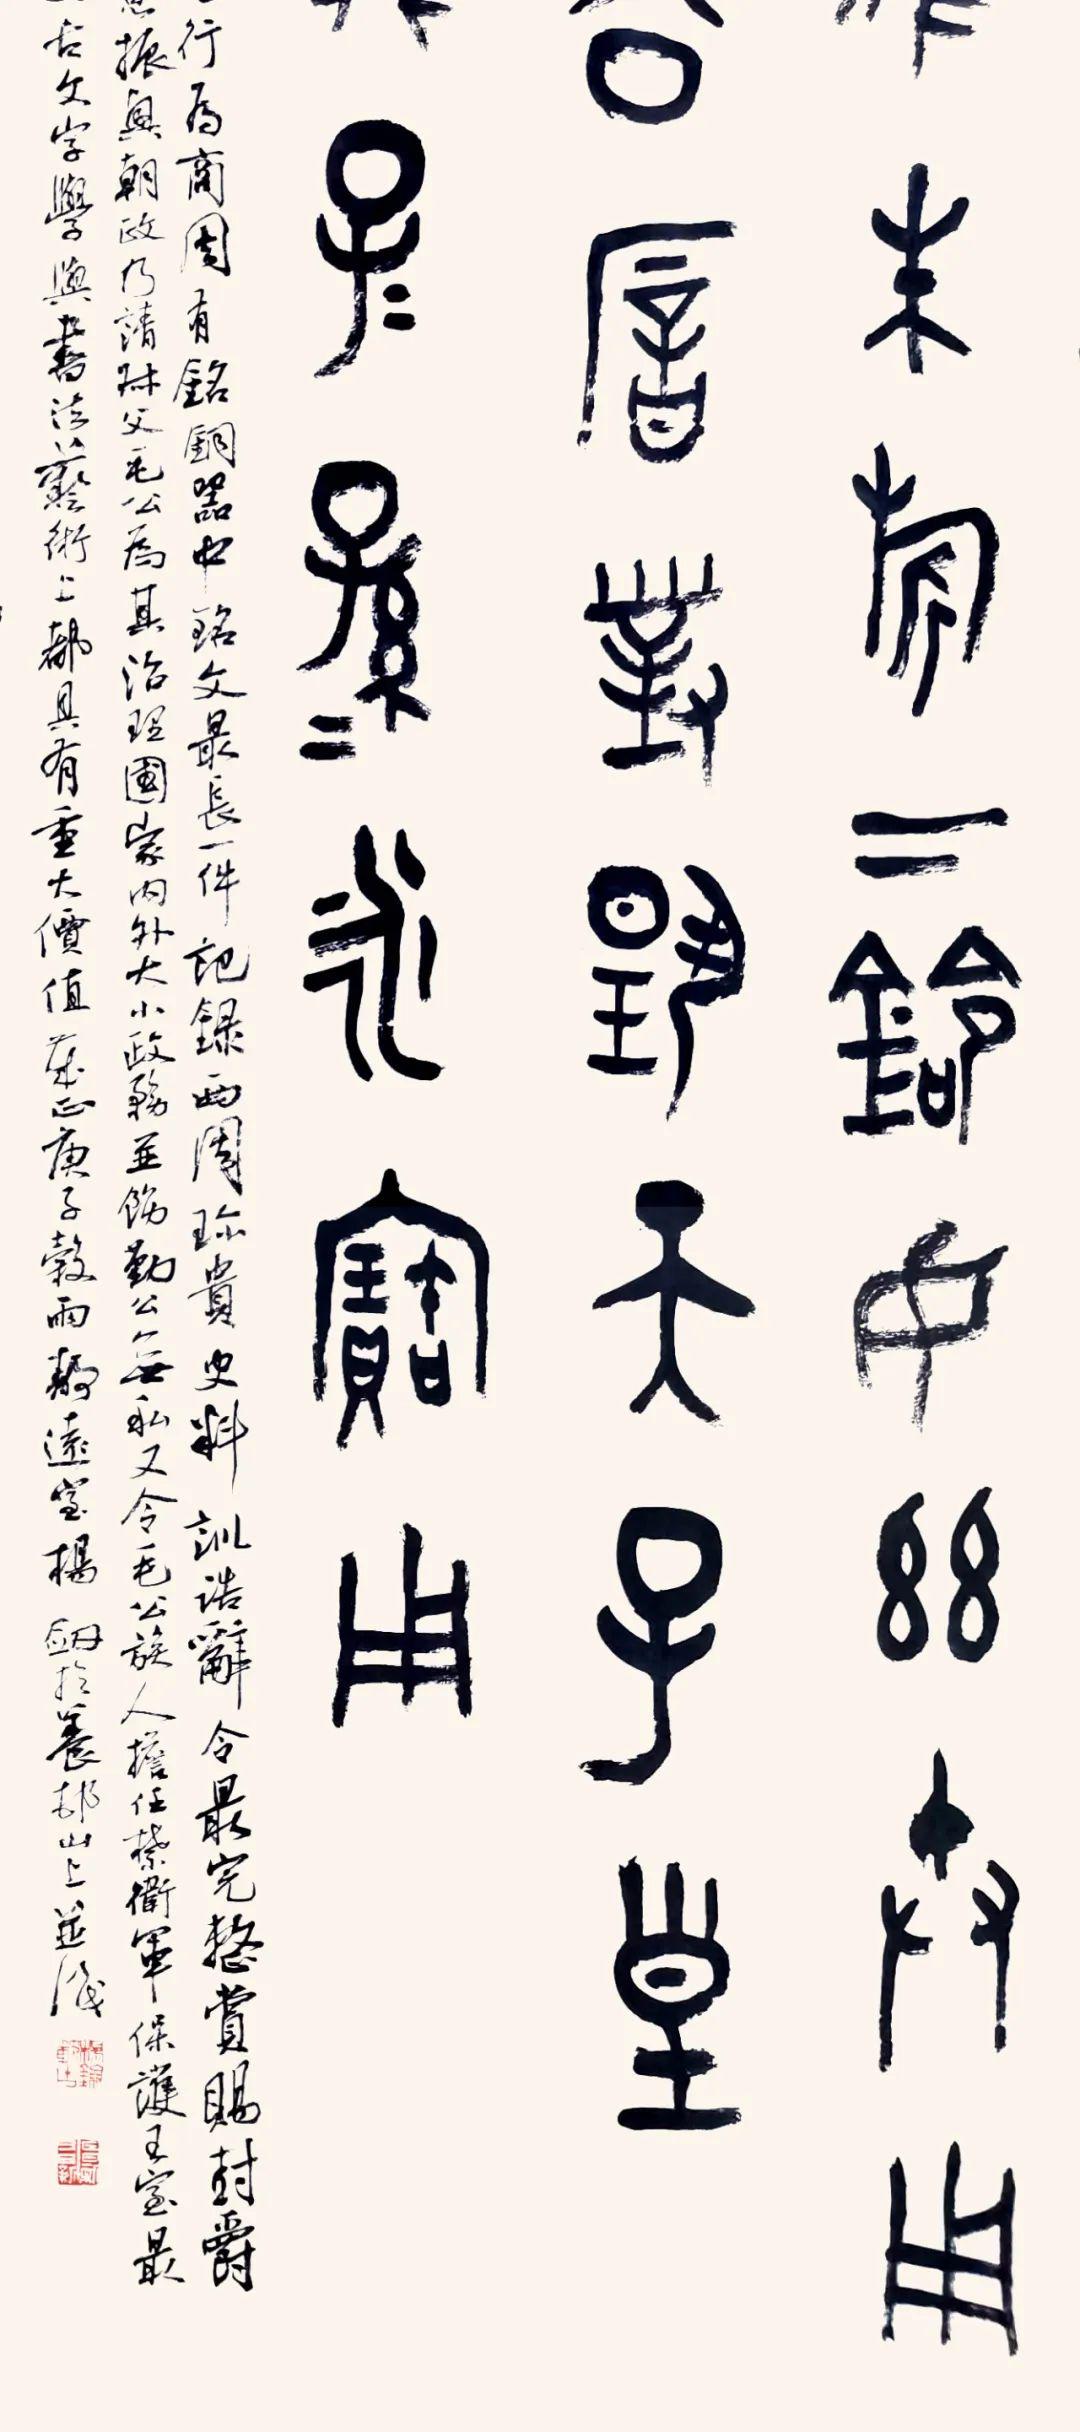 朱旂二鈴女茲用
公厝對揚天子皇
子＝孫＝永寶用
行為商周有銘銅器中銘文最長一件記錄西周珍貴史料訓誥辭令最完整賞賜封爵
振興朝政乃請叔父毛公為其治理國家內外大小政務並飭勤公無私又令毛公族人擔任禁衛軍保護王室最
古文字學與書法藝術上都具有重大價值歲正庚子穀雨靜遠室楊於養邨山上並識